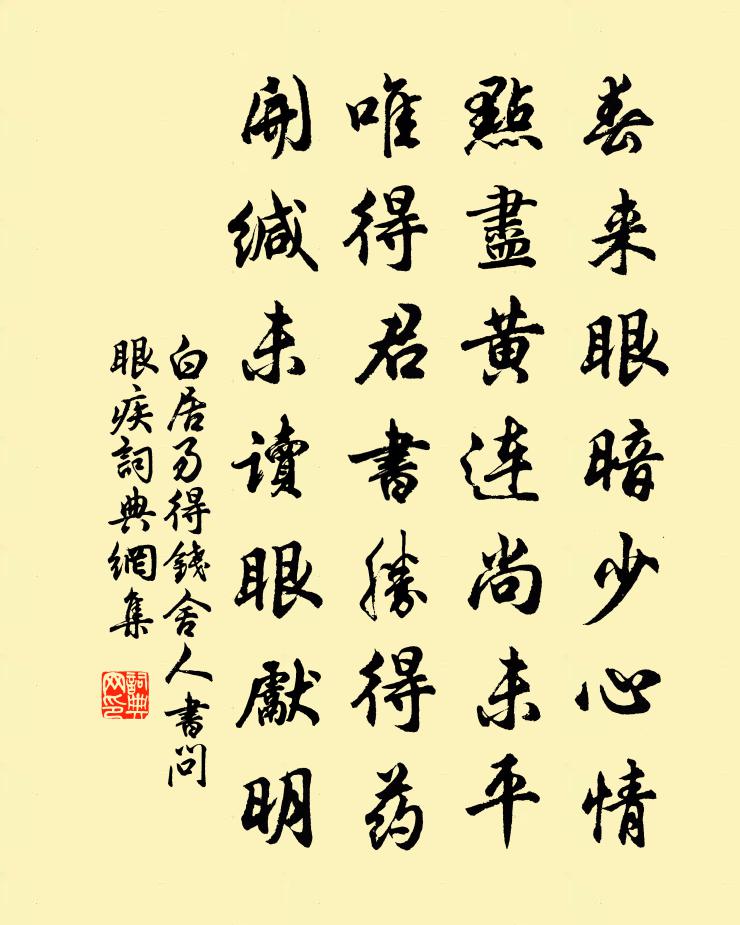 春来眼暗少心情
點盡黄连尚未平
唯得君書勝得药
開緘未讀眼獻明
白居易得錢舍人書問
眼疾詞典網集
詞典
网印